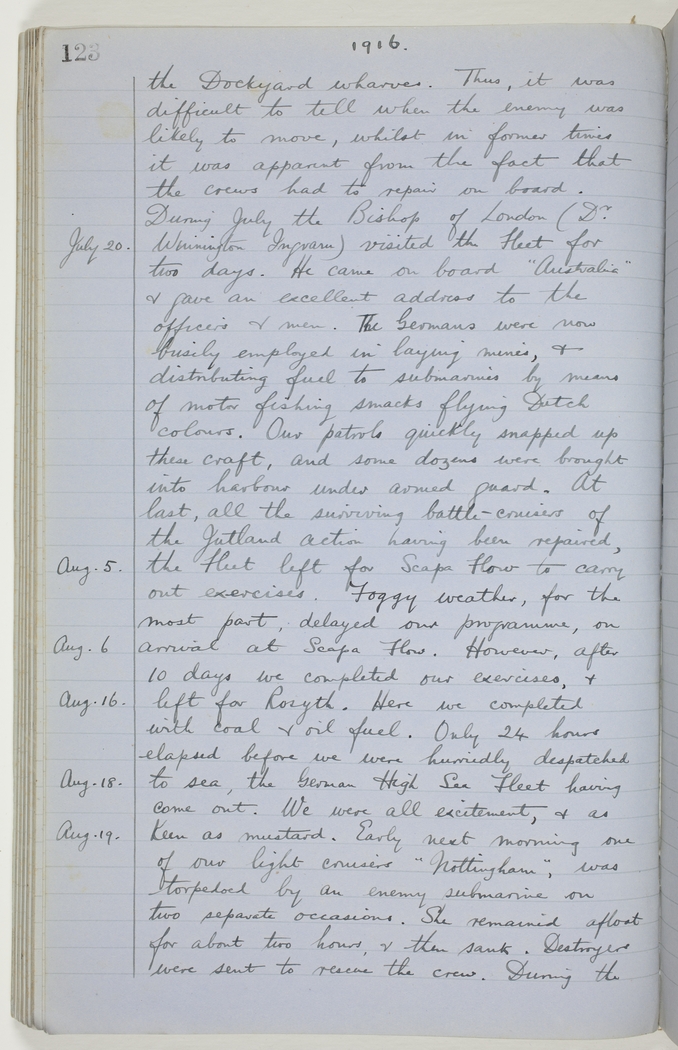 123
1916.
the Dockyard wharves. Thus, it was
difficult to tell when the enemy was
likely to move, whilst in former times
it was apparent from the fact that
the crews had to repair on board.
During July the Bishop of London (Dr.
July 20. Winnington Ingram) visited the Fleet for
two days. He came on board "Australia"
& gave an excellent address to the
officers & men. The Germans were now
busily employed in laying mines, &
distributing fuel to submarines by means
of motor fishing smacks flying Dutch
colours. Our patrols quickly snapped up
these craft, and some dozens were brought
into harbour under armed guard. At
last, all the surviving battle-cruisers of
the Jutland action having been repaired,
Aug. 5. the Fleet left for Scapa Flow to carry
out exercises. Foggy weather, for the
most part, delayed our programme, on
Aug. 6 arrival at Scapa Flow. However, after
10 days we completed our exercises, &
Aug. 16. left for Rosyth. Here we completed
with coal & oil fuel. Only 24 hours
elapsed before we were hurriedly despatched
Aug. 18. to sea, the German High Sea Fleet having
come out. We were all excitement, & as
Aug. 19. keen as mustard. Early next morning one
of our light cruisers "Nottingham", was
torpedoed by an enemy submarine on
two separate occasions. She remained afloat
for about two hours, & then sank. Destroyers
were sent to rescue the crew. During the